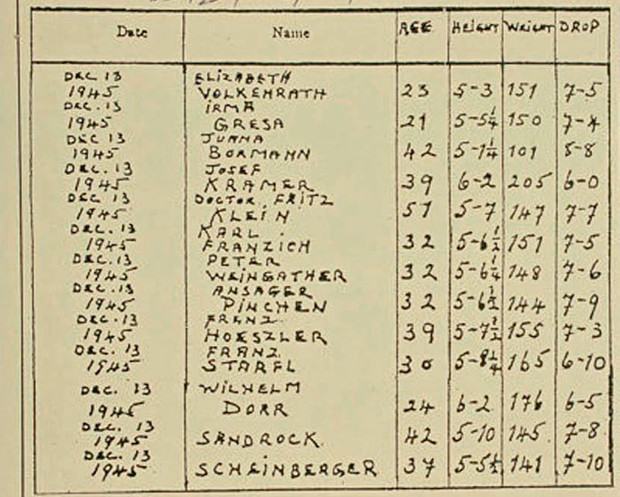 Date Name AGE HEIGHT WEIGHT DROP
DEC 13 ELIZABETH
1945 VOLKENRATH 23 5-3 151 7-5
DEC. 13 IRMA
1945 GRESA 21 5-5¼ 150 7-4
DEC 13 JUANA
1945 BORMANN 42 5-1¼ 101 8-8
DEC. 13 JOSEF
1945 KRAMER 39 6-2 205 6-0
DEC 13 DOCTOR. FRITZ
1945 KLEIN 51 5-7 147 7-7
DEC. 13 KARL.
1945 FRANZICH 32 5-6½ 151 7-5
DEC. 13 PETER
1945 WEINGATHER 32 5-6¼ 148 7-6
DEC. 13 ANSAGER
1945 PINCHEN 32 5-6½ 144 7-9
DEC. 13 FRENZ.
1945 HOESZLER 39 5-7½ 155 7-3
DEC. 13 FRANZ.
1945 STARFL 30 5-8¼ 165 6-10
DEC. 13 WILHELM
1945 DORR 24 6-2 176 6-5
DEC. 13
1945 SANDROCK. 42 5-10 145. 7-8
DEC. 13
1945 SCHEINBERGER 37 5-5½ 141 7-10